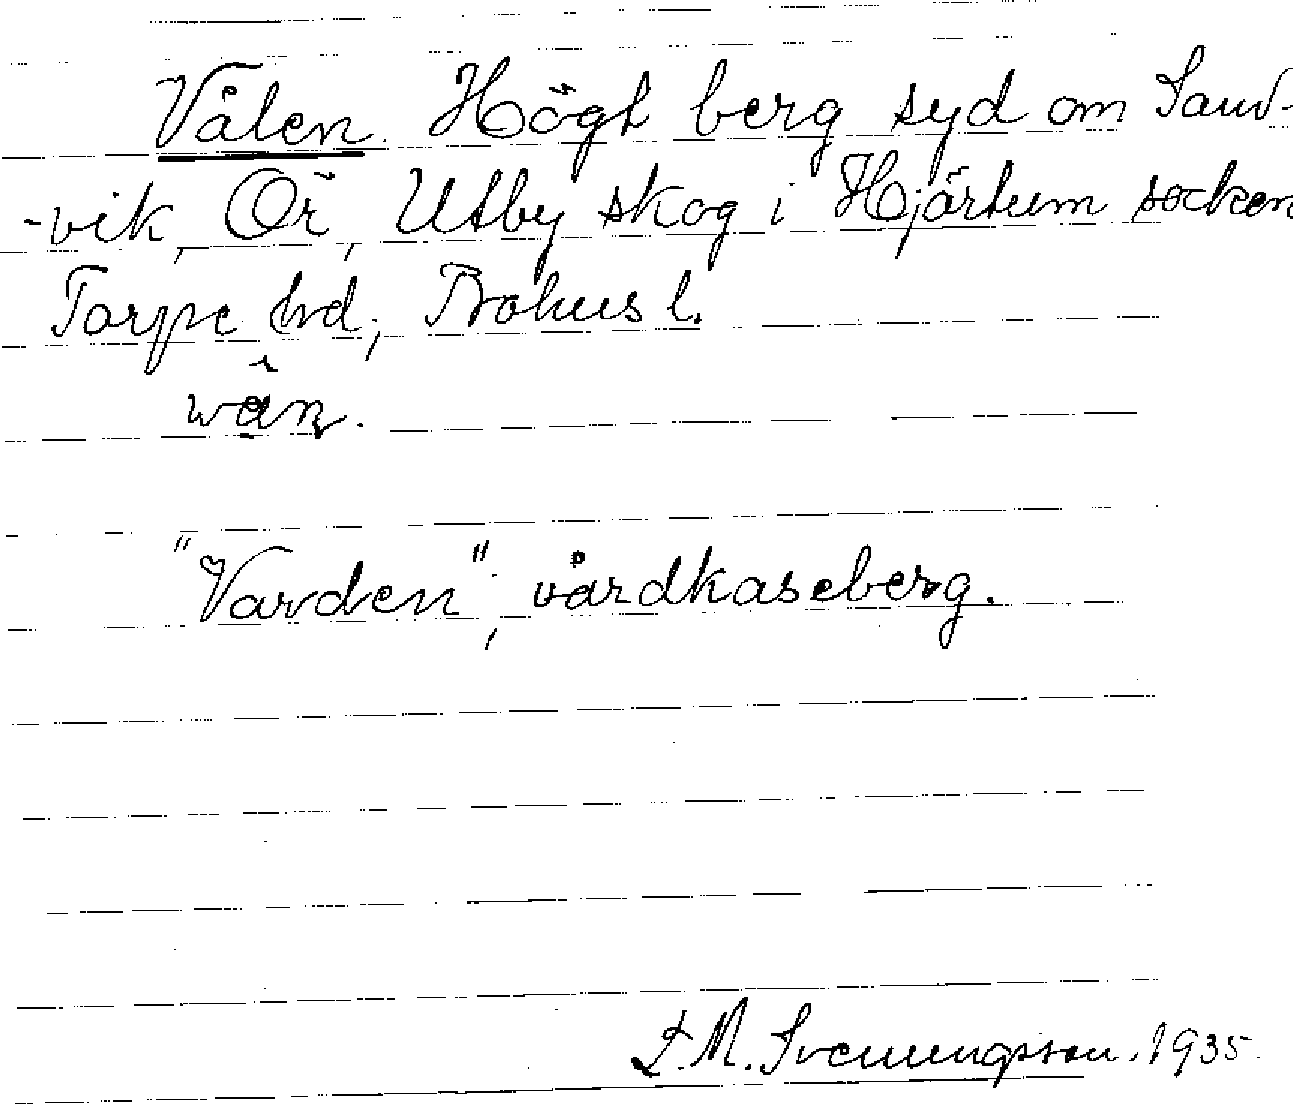 Vålen. Högt berg syd om Sand-
-vik, Ör, Utby skog i Hjärtum socken
Torpe hrd; Bohus l.
"Varden", vårdkaseberg.
F. M. Svenungsson. 1935.